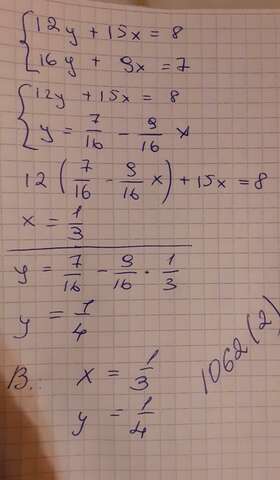 12y + 15x = 8
16y + 9x = 7
12y + 15x = 8
y = 7/16 - 9/16 x
12 (7/16 - 9/16 x) + 15x = 8
x = 1/3
y = 7/16 - 9/16 · 1/3
y = 1/4
B.: x = 1/3
y = 1/4
1062(2)